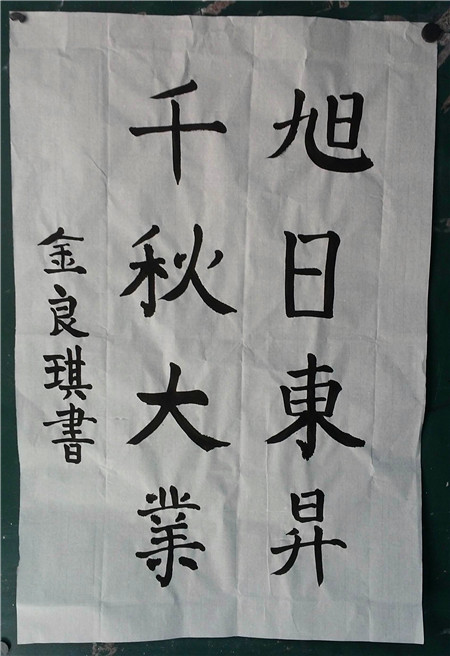 旭日東昇
千秋大業
金良琪書